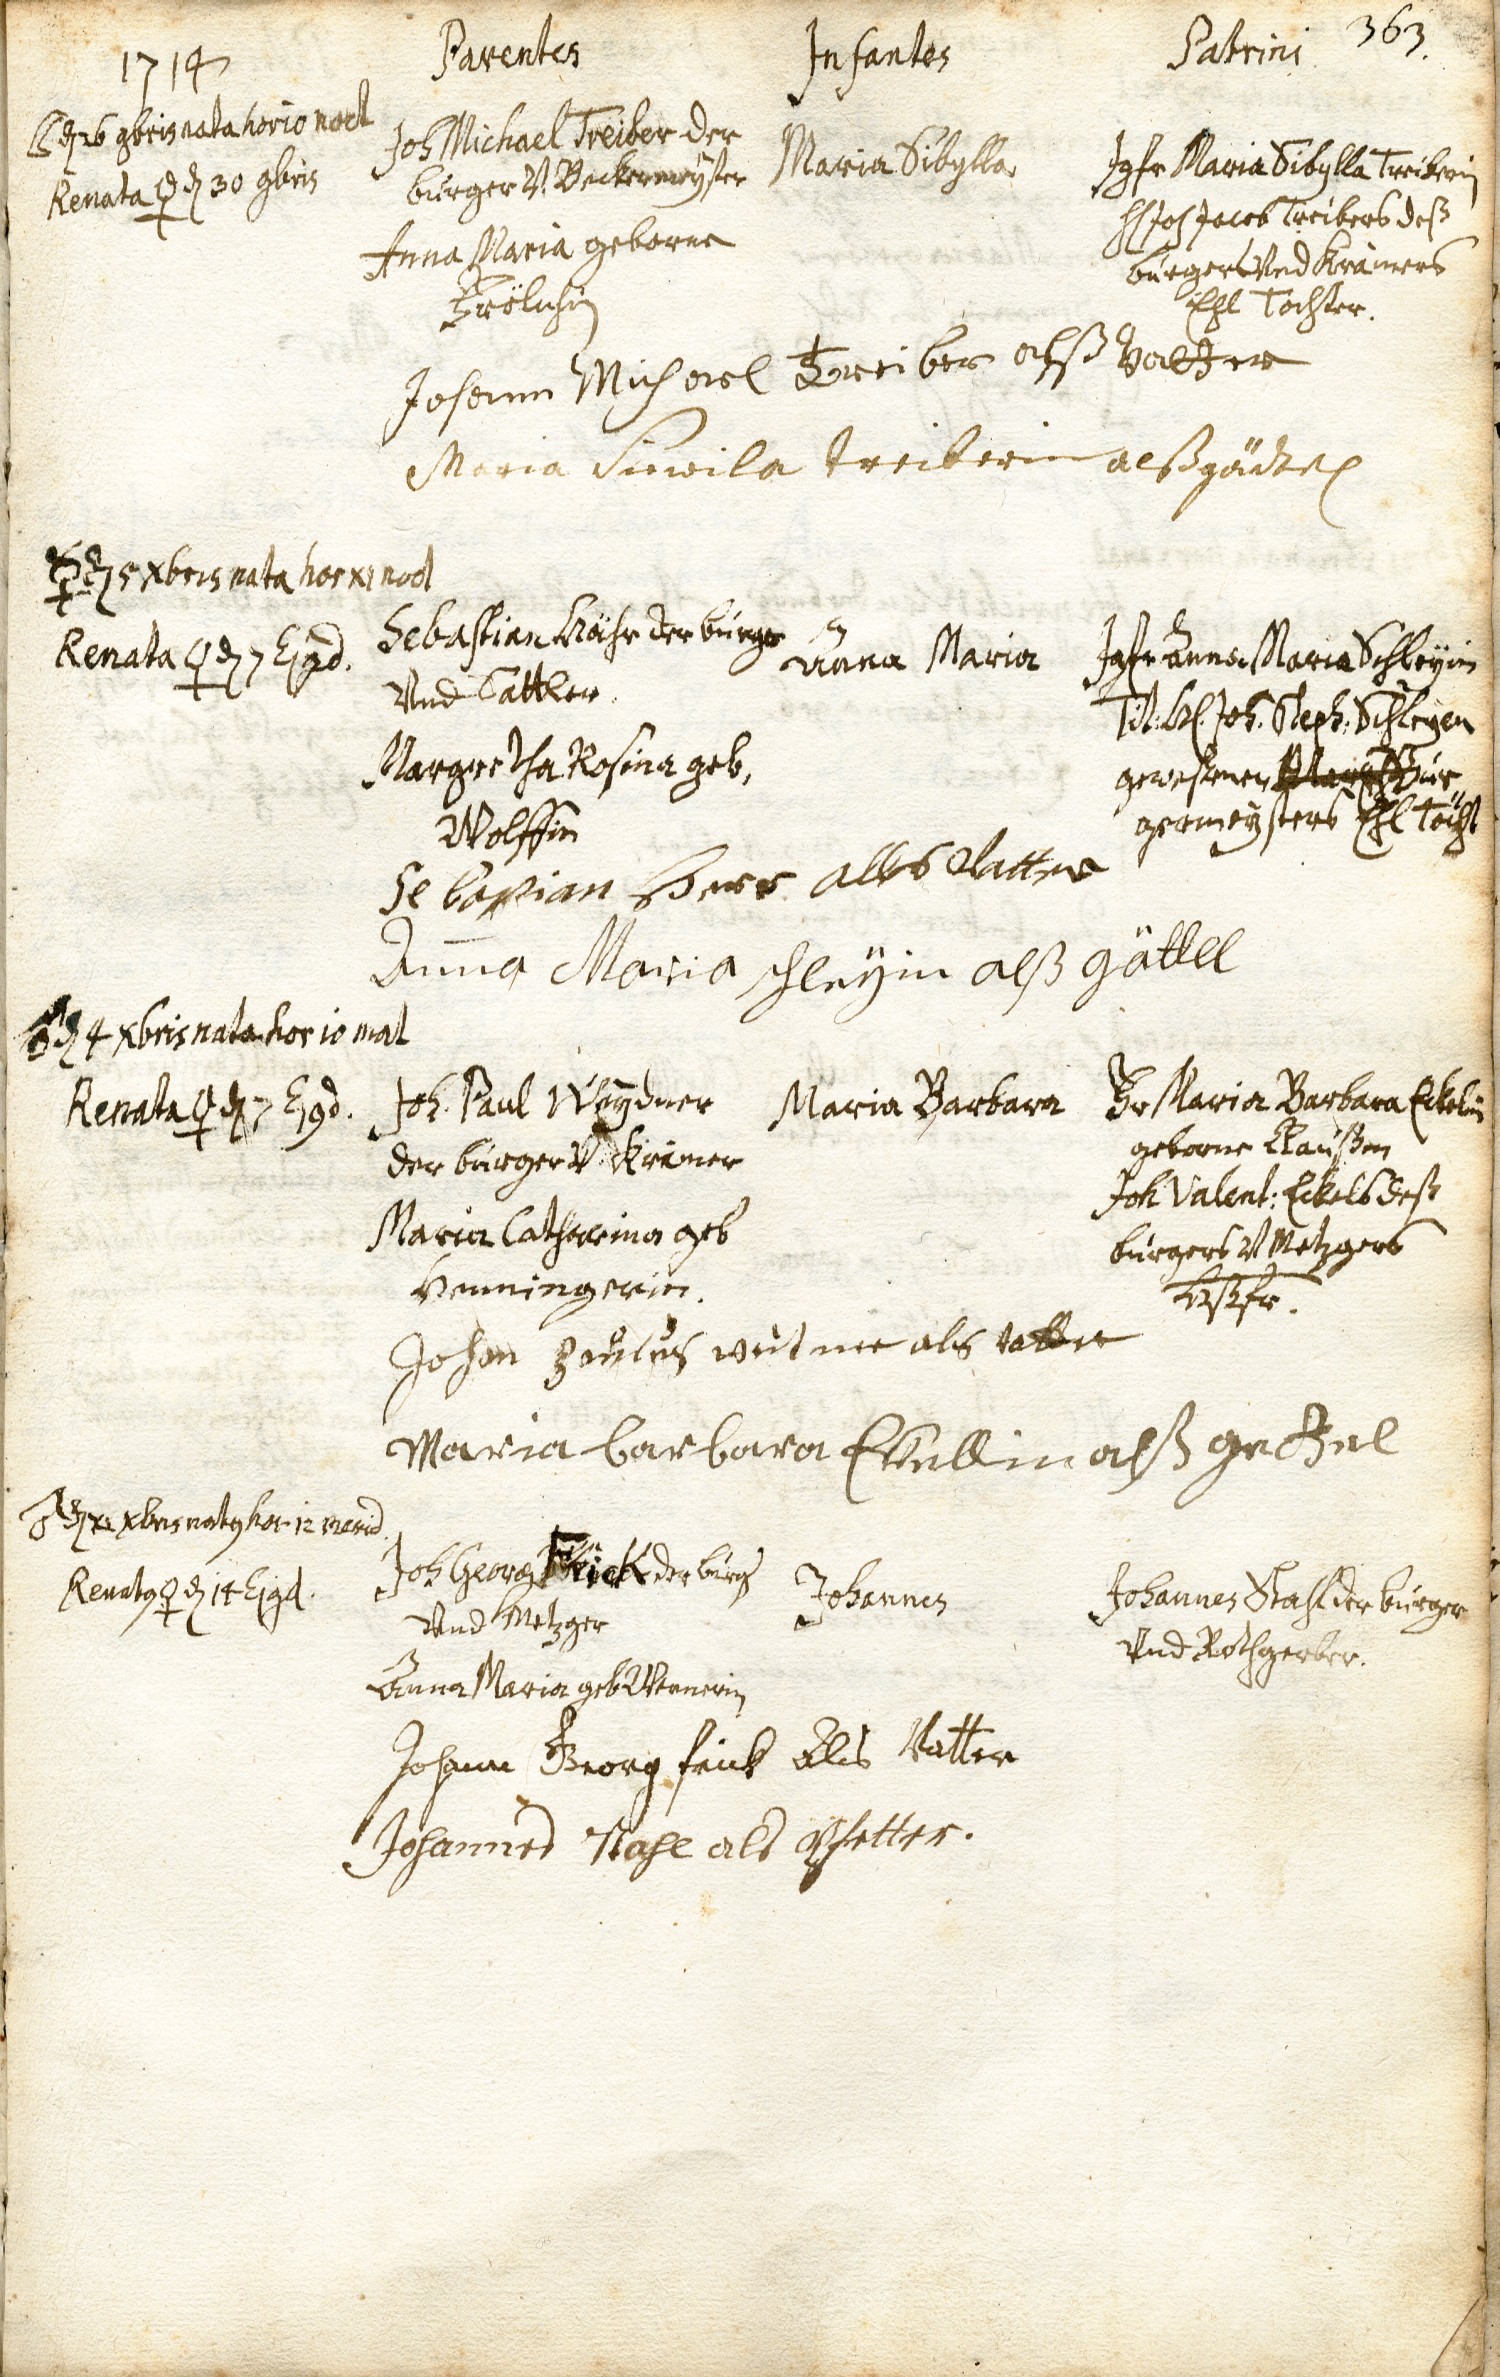 363.
1714 Parentes Infantes Patrini
26 9bris nata hor 10 noct
Renata ♀ 30 9bris
Joh Michael Treiber der
burger V. Beckermeyster
Anna Maria geborne
Maria Sibylla.
Jgfr Maria Sibylla Treiberin
Joh Jacob Treibers deß
burgers Vnd Krämers
Ehl Tochter.
Johann Michael Treiber alß Vatter
Maria treiberin alß
5 Xbris nata hor XI noct
Renata ♀ 7 Ejgd.
Sebastian der burger
Vnd Sattler.
Margretha Rosina geb,
Wolffin
Anna Maria
Jgfr Anna Maria Schleyin
Tit: Joh. Steph: Schleyen
gewesenen Bur
germeysters Ehl Tocht
Sebastian allß Vatter
Anna Maria schleyin alß göttell
♂ 4 Xbris nata hor 10 mat
Renata ♀ 7 Ejgd.
Joh. Paul Weydner
der burger V. Krämer
Maria Catharina geb
Henningerin.
Maria Barbara
Fr Maria Barbara Eckelin
geborne Claußen
Joh Valent: Eckels deß
burgers V Metzgers
Haußfr.
Johan als vatter
Maria barbara Ekellin alß
♂ Xbris natq hor 12 merid.
Renatq ♀ 14 Ejgd.
Joh Georg Frick der burg
Vnd Metzger
Anna Maria geb Wernerin
Johannes
Johannes Stahl der burger
Vnd Rothgerber.
Johann Georg frick Als Vatter
Johannes Stahl als Pfetter.